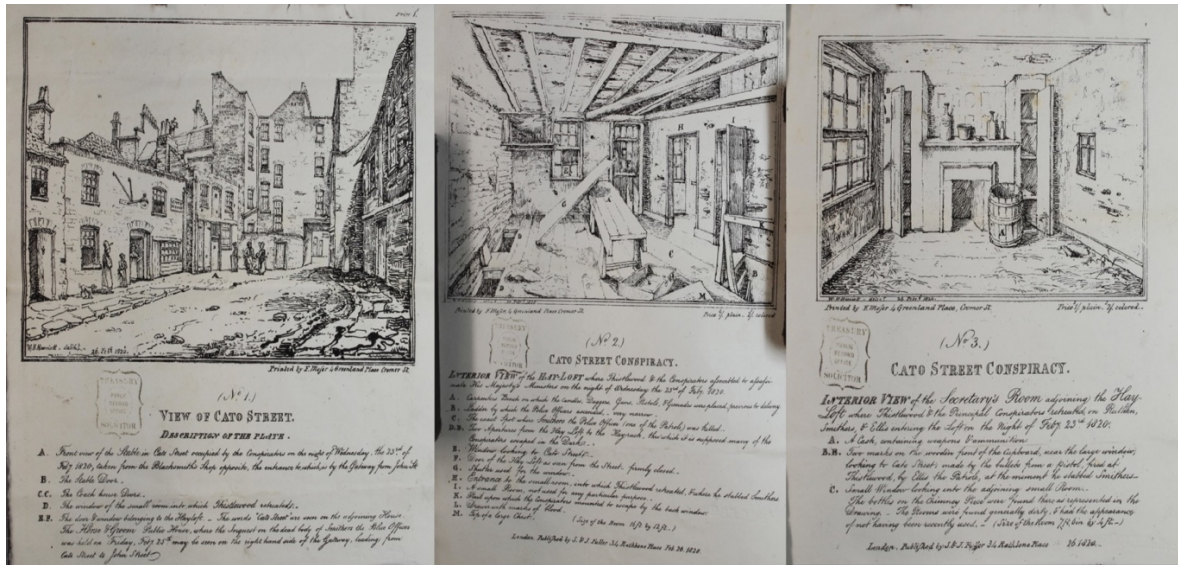 Plate 1.
W. H. Harriott - delin.t
26 Feb.y 1820.
Printed by F. Moser 4 Greenland Place Cromer St.
TREASURY
PUBLIC
RECORD
OFFICE
SOLICITOR
(No. 1)
VIEW OF CATO STREET.
DESCRIPTION OF THE PLATE.
A. Front view of the Stable in Cato Street occupied by the Conspirators on the night of Wednesday, the 23rd of
Feby. 1820, taken from the Blacksmiths Shop opposite, the entrance to which is by the Gateway from John St.
B. The Stable Door.
C.C. The Coach house Doors.
D. The window of the small room into which Thistlewood retreated.
E.F. The door & window belonging to the Hayloft. The words "Cato Street" are seen on the adjoining House.
The Horse & Groom Public House, where the Inquest on the dead body of Smithers the Police Officer
was held on Friday, Feby. 25th may be seen on the right hand side of the Gateway, leading from
Cato Street to John Street
Printed by F. Moser 4 Greenland Place Cromer St.
Price 1/ plain. 2/ colored
TREASURY
PUBLIC
RECORD
OFFICE
SOLICITOR
(No. 2)
CATO STREET CONSPIRACY.
INTERIOR VIEW of the HAY-LOFT where Thistlewood & the Conspirators assembled to assassi-
nate His Majesty's Ministers on the night of Wednesday the 23rd of Feby. 1820.
A. Carpenters Bench on which the candles, Daggers, Guns, Pistols, & Grenades was placed, previous to
B. Ladder by which the Police Officers ascended, very narrow.
C. The exact Spot where Smithers the Police Officer (one of the Patrole) was killed.
D.D. Two Apertures from the Hay Loft to the Hayrack, thro which it is supposed many of the
Conspirators escaped in the Dark.
E. Window looking to Cato Street.
F. Door of the Hay Loft as seen from the Street, firmly closed.
G. Shutter used for the window.
H. Entrance to the small room, into which Thistlewood retreated, & where he stabbed Smithers
I. A small Room, not used for any particular purpose.
K. Shed upon which the Conspirators mounted to escape by the back window.
L. Drawn with marks of blood.
M. Top of a large Chest.
(Size of the Room
London. Published by S. & J. Fuller 34 Rathbone Place Feb. 26. 1820.
W. H. Harriott - delin.t 26 Feb.y 1820.
Printed by F. Moser 4 Greenland Place, Cromer St.
Price 1/ plain. 2/ colored.
TREASURY
PUBLIC
RECORD
OFFICE
SOLICITOR
(No. 3.)
CATO STREET CONSPIRACY.
INTERIOR VIEW of the Secretary's Room adjoining the Hay-
Loft where Thistlewood & the Principal Conspirators retreated, on Ruthven,
Smithers, & Ellis entering the Loft on the Night of Feby. 23rd 1820.
A. A Cask, containing weapons & ammunition
B.B. Two marks on the wooden front of the Cupboard, near the large window,
looking to Cato Street, made by the bullets from a Pistol, fired at
Thistlewood, by Ellis the Patrole, at the moment he stabbed Smithers
C. Small Window looking into the adjoining small Room.
The bottles on the Chimney Piece were found there as represented in the
Drawing. The Rooms were found generally dirty, & had the appearance
of not having been recently used. (Size of the Room 7ft. 6in by
London. Published by S. & J. Fuller 34 Rathbone Place 26 1820.